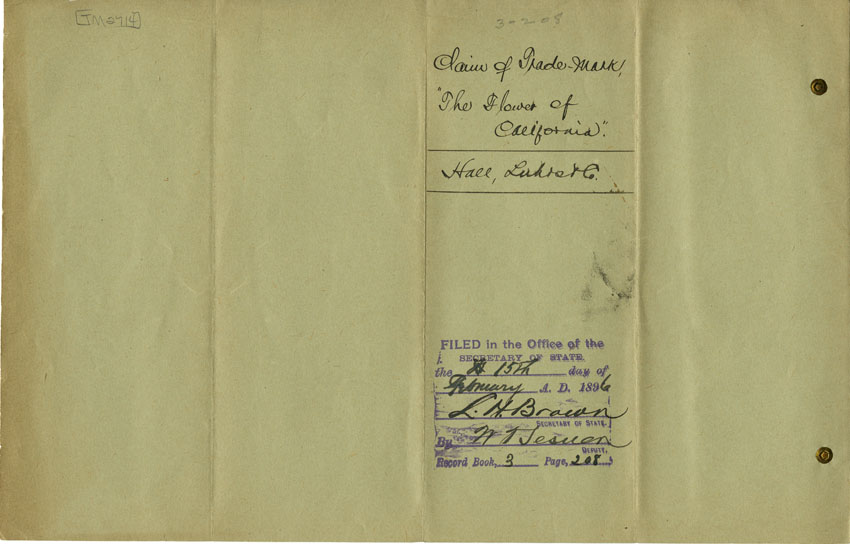 TM 2714
3-208
Claim of Trade-Mark,
"The Flower of
California".
Hall, Luhrs & Co.
FILED in the Office of the
SECRETARY OF STATE.
the 15th day of
February A. D. 1896
L. H. Brown
SECRETARY OF STATE.
By
DEPUTY.
Record Book, 3 Page, 208